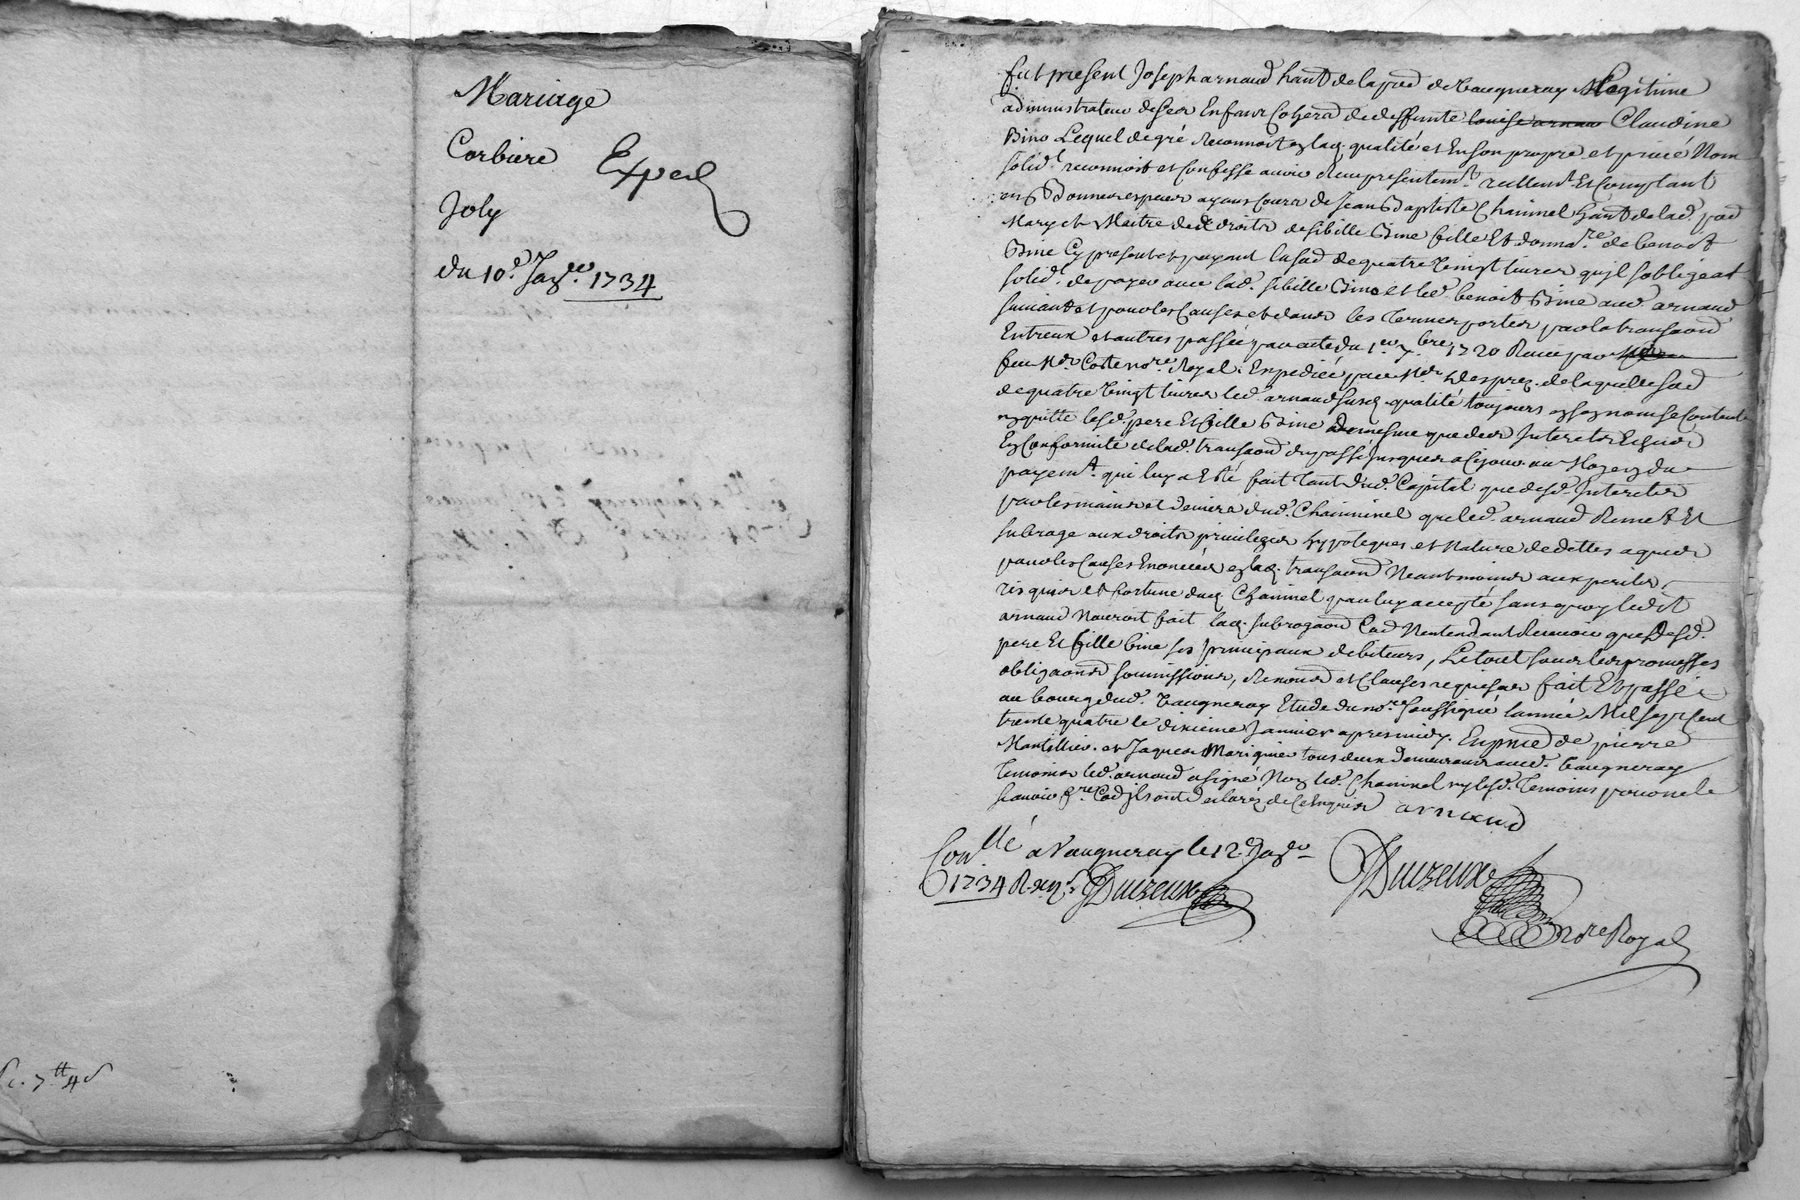 Mariage
Corbiere Exped
Joly
du 10e Janer 1734
fut present Joseph arnaud hant de la pard de Vaugneray Legitime
administrateur de ses Enfans Coherd de deffunte louise arnau Claudine
Bine Lequel de gré reconnoit ez lad. qualité et En son propre et privé Nom
solidt reconnoit et Confesse avoir Receu presentemt reellemt Et Comptant
en Bonnes especes ayans Cours de Jean Baptiste Chaininel hant de lad. pard
Mary et Maitre des droits de sibille Bine fille Et donnare de benoist
Bine Cy present et payant la sad de quatre Vingt livres qu'jl s'obligeat
solidt de payer avec lad. sibille Bine et led benoist Bine aud arnaud
suivant et pour les Causes et dans les Termes portés par la transaond
Entreux et autres passée par acte du 1er 7bre 1720 Receu par
feu Me Coste nore Royal. Expediée par Me Desprez. de laquelle sad
de quatre Vingt livres led. arnaud susd. qualité toujours ez sd noms se Contente
en quitte lesd. pere Et fille Bine de mesme que des Interets Echus
En Conformité de lad. transaond du passé jusques a Ce jour au Moyen du
payemt. qui luy a Eté fait Tant dud. Capital que desd. Interets
par les mains et deniers dud. Chaininel que led. arnaud Remet Et
subroge aux droits privileges hypoteques et Nature de dettes aquis
par les Causes Enoncées ez lad. transaond Neantmoins aux perils
risques et fortune dud. Chaininel qu'a luy accepté sans quoy ledit
arnaud N'auroit fait lad. subrogaond Cad N'entendant Devoir que desd.
pere Et fille bine ses principaux debiteurs, Le tout sous les promesses
obligaonds soumissions, Renonds et Clauses requises fait Et passé
au bourg dud. Vaugneray Etude du nore soussigné l'année Mil sept Cent
trente quatre le dixieme Janvier apres midy. En pnce de pierre
Mantellier et Jaques Marignier tous deux Demeurans aud. Vaugneray
temoins led. arnaud a signé Non led. Chaininel ny lesd. Temoins pour ne le
sçavoir Cad jls ont declarez de Ce Enquis arnaud
Conllé a Vaugneray le 12e Janer
1734 R. Duizeux Duizeux
nore Royal